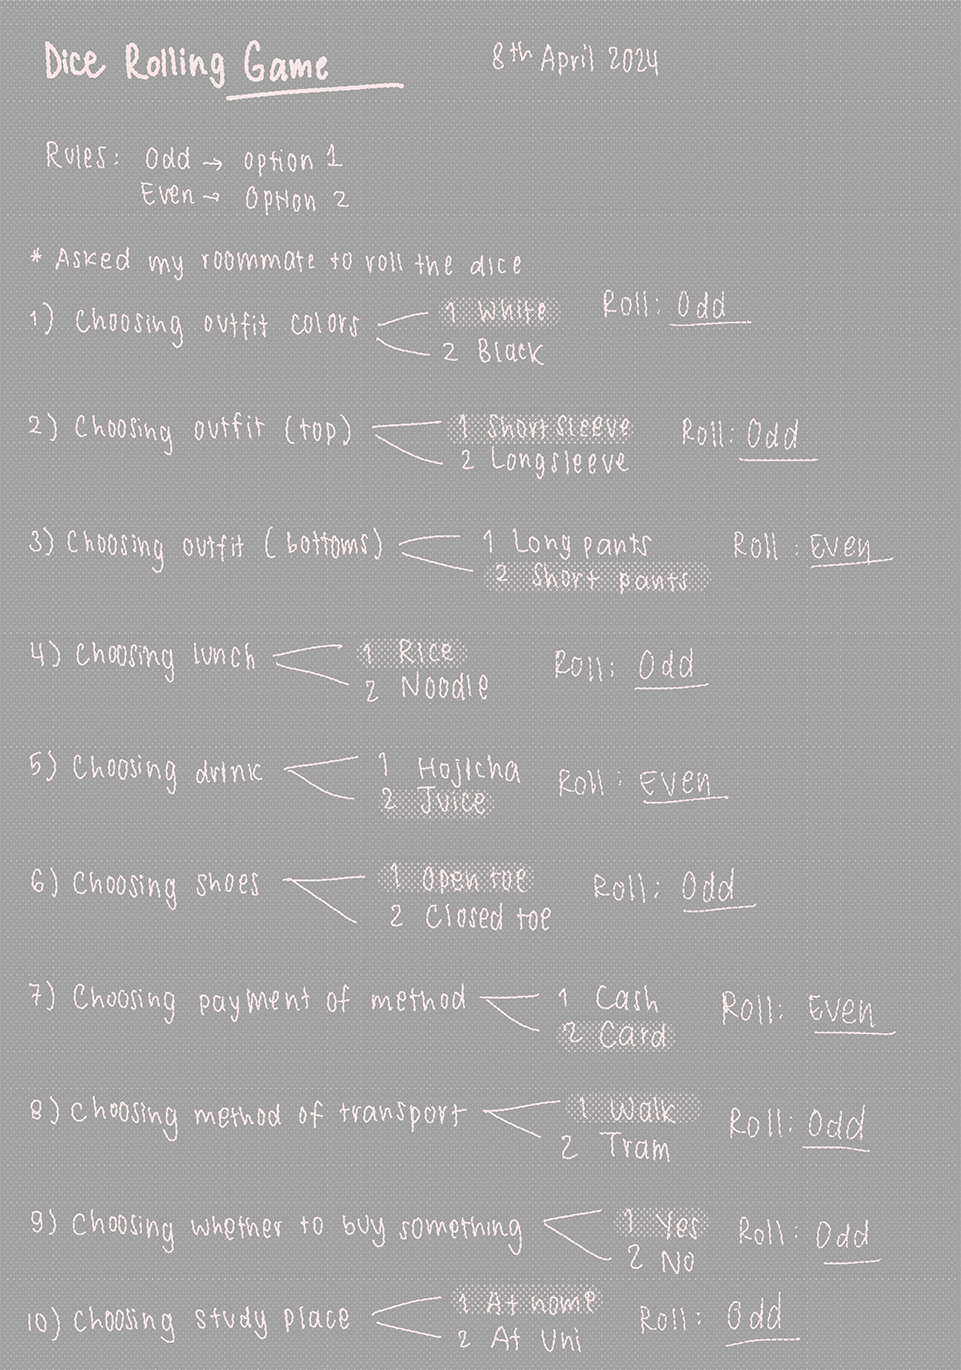 Dice Rolling Game
8th April 2024
Rules: Odd → option 1
Even → Option 2
* Asked my roommate to roll the dice
1) Choosing outfit colors
1 White
2 Black
Roll: Odd
2) Choosing outfit (top)
1 Short sleeve
2 Longsleeve
Roll: Odd
3) Choosing outfit (bottoms)
1 Long pants
2 Short pants
Roll: Even
4) Choosing lunch
1 Rice
2 Noodle
Roll: Odd
5) Choosing drink
1 Hojicha
2 Juice
Roll: Even
6) Choosing shoes
1 Open toe
2 Closed toe
Roll: Odd
7) Choosing payment of method
1 Cash
2 Card
Roll: Even
8) Choosing method of transport
1 Walk
2 Tram
Roll: Odd
9) Choosing whether to buy something
1 Yes
2 No
Roll: Odd
10) Choosing study place
1 At home
2 At Uni
Roll: Odd